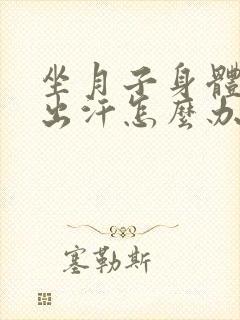 坐月子身體
出汗怎麼办
塞勒斯